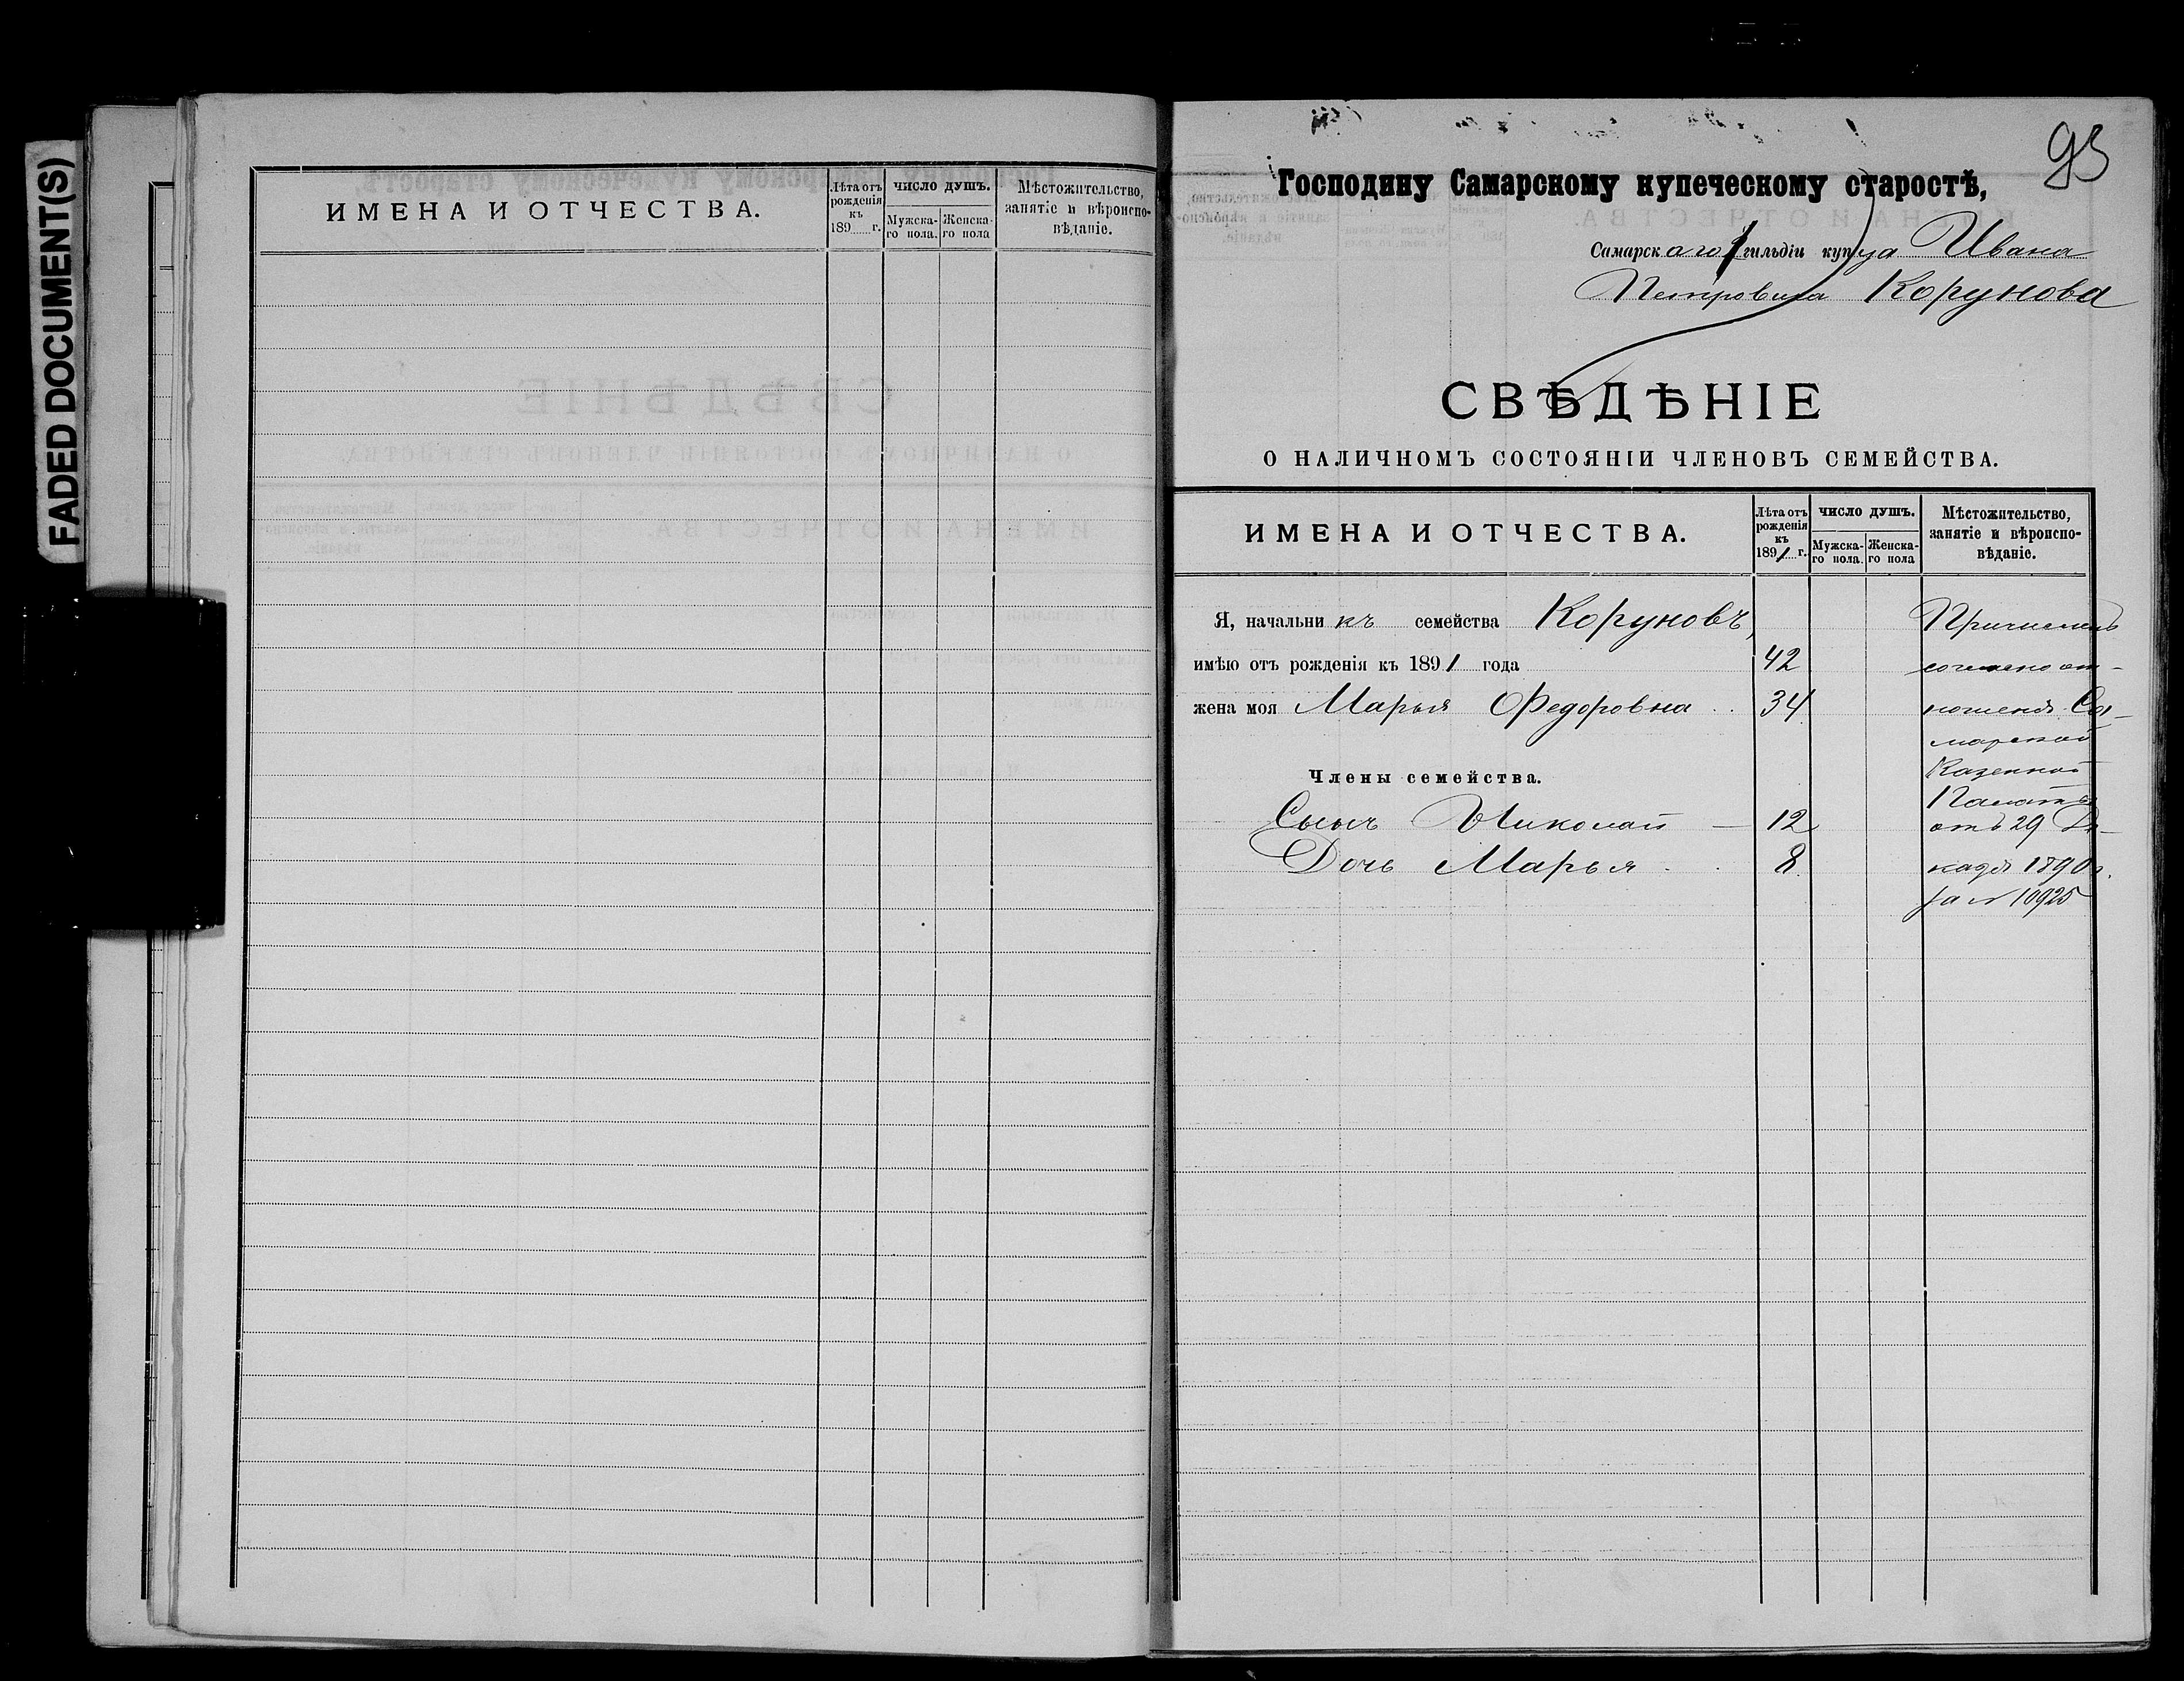 FADED DOCUMENT(S)
ИМЕНА И ОТЧЕСТВА.
Лѣта отъ рожденія къ 189 г.
ЧИСЛО ДУШЪ.
Мужска-го пола.
Женска-го пола
Мѣстожительство, занятіе и вѣроиспо-вѣданіе.
93
Господину Самарскому купеческому старостѣ,
Самарскаго гильдіи купца Ивана
Петровича Корунова
СВѢДѢНІЕ
О НАЛИЧНОМЪ СОСТОЯНІИ ЧЛЕНОВЪ СЕМЕЙСТВА.
ИМЕНА И ОТЧЕСТВА.
Лѣта отъ рожденія къ 1891 г.
ЧИСЛО ДУШЪ.
Мужска-го пола.
Женска-го пола
Мѣстожительство, занятіе и вѣроиспо-вѣданіе.
Я, начальникъ семейства Коруновъ,
имѣю отъ рожденія къ 1891 года 42
жена моя Марья Федоровна 34
Члены семейства.
Сынъ Николай — 12
Дочь Марья 8.
Причисленъ
согласно от-
ношенія Са-
марской
Казенной
Палаты
отъ 29 Де-
кабря 1890 г.
за № 10925